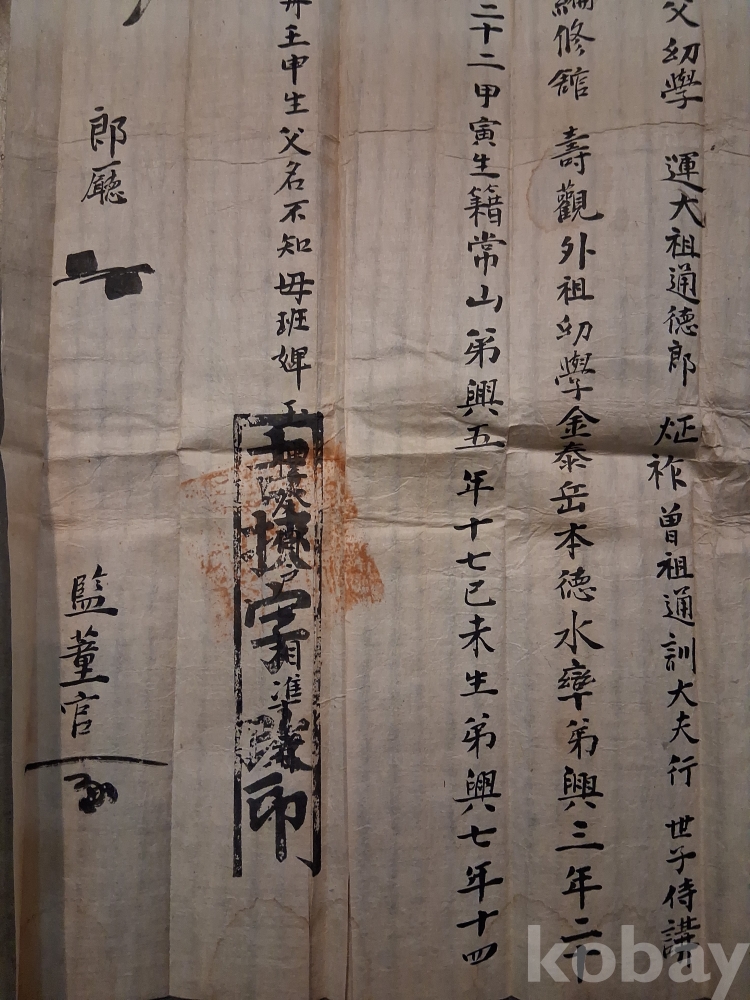 父幼學 運大祖通德郎 烶祚曽祖通訓大夫行 世子侍講
編修館 壽觀外祖幼學金泰岳本德水率弟興三年二十
二十二甲寅生籍常山弟興五年十七己未生弟興七年十四
壬申生父名不知母班婢
準
印
郎廳
監董官
kobay